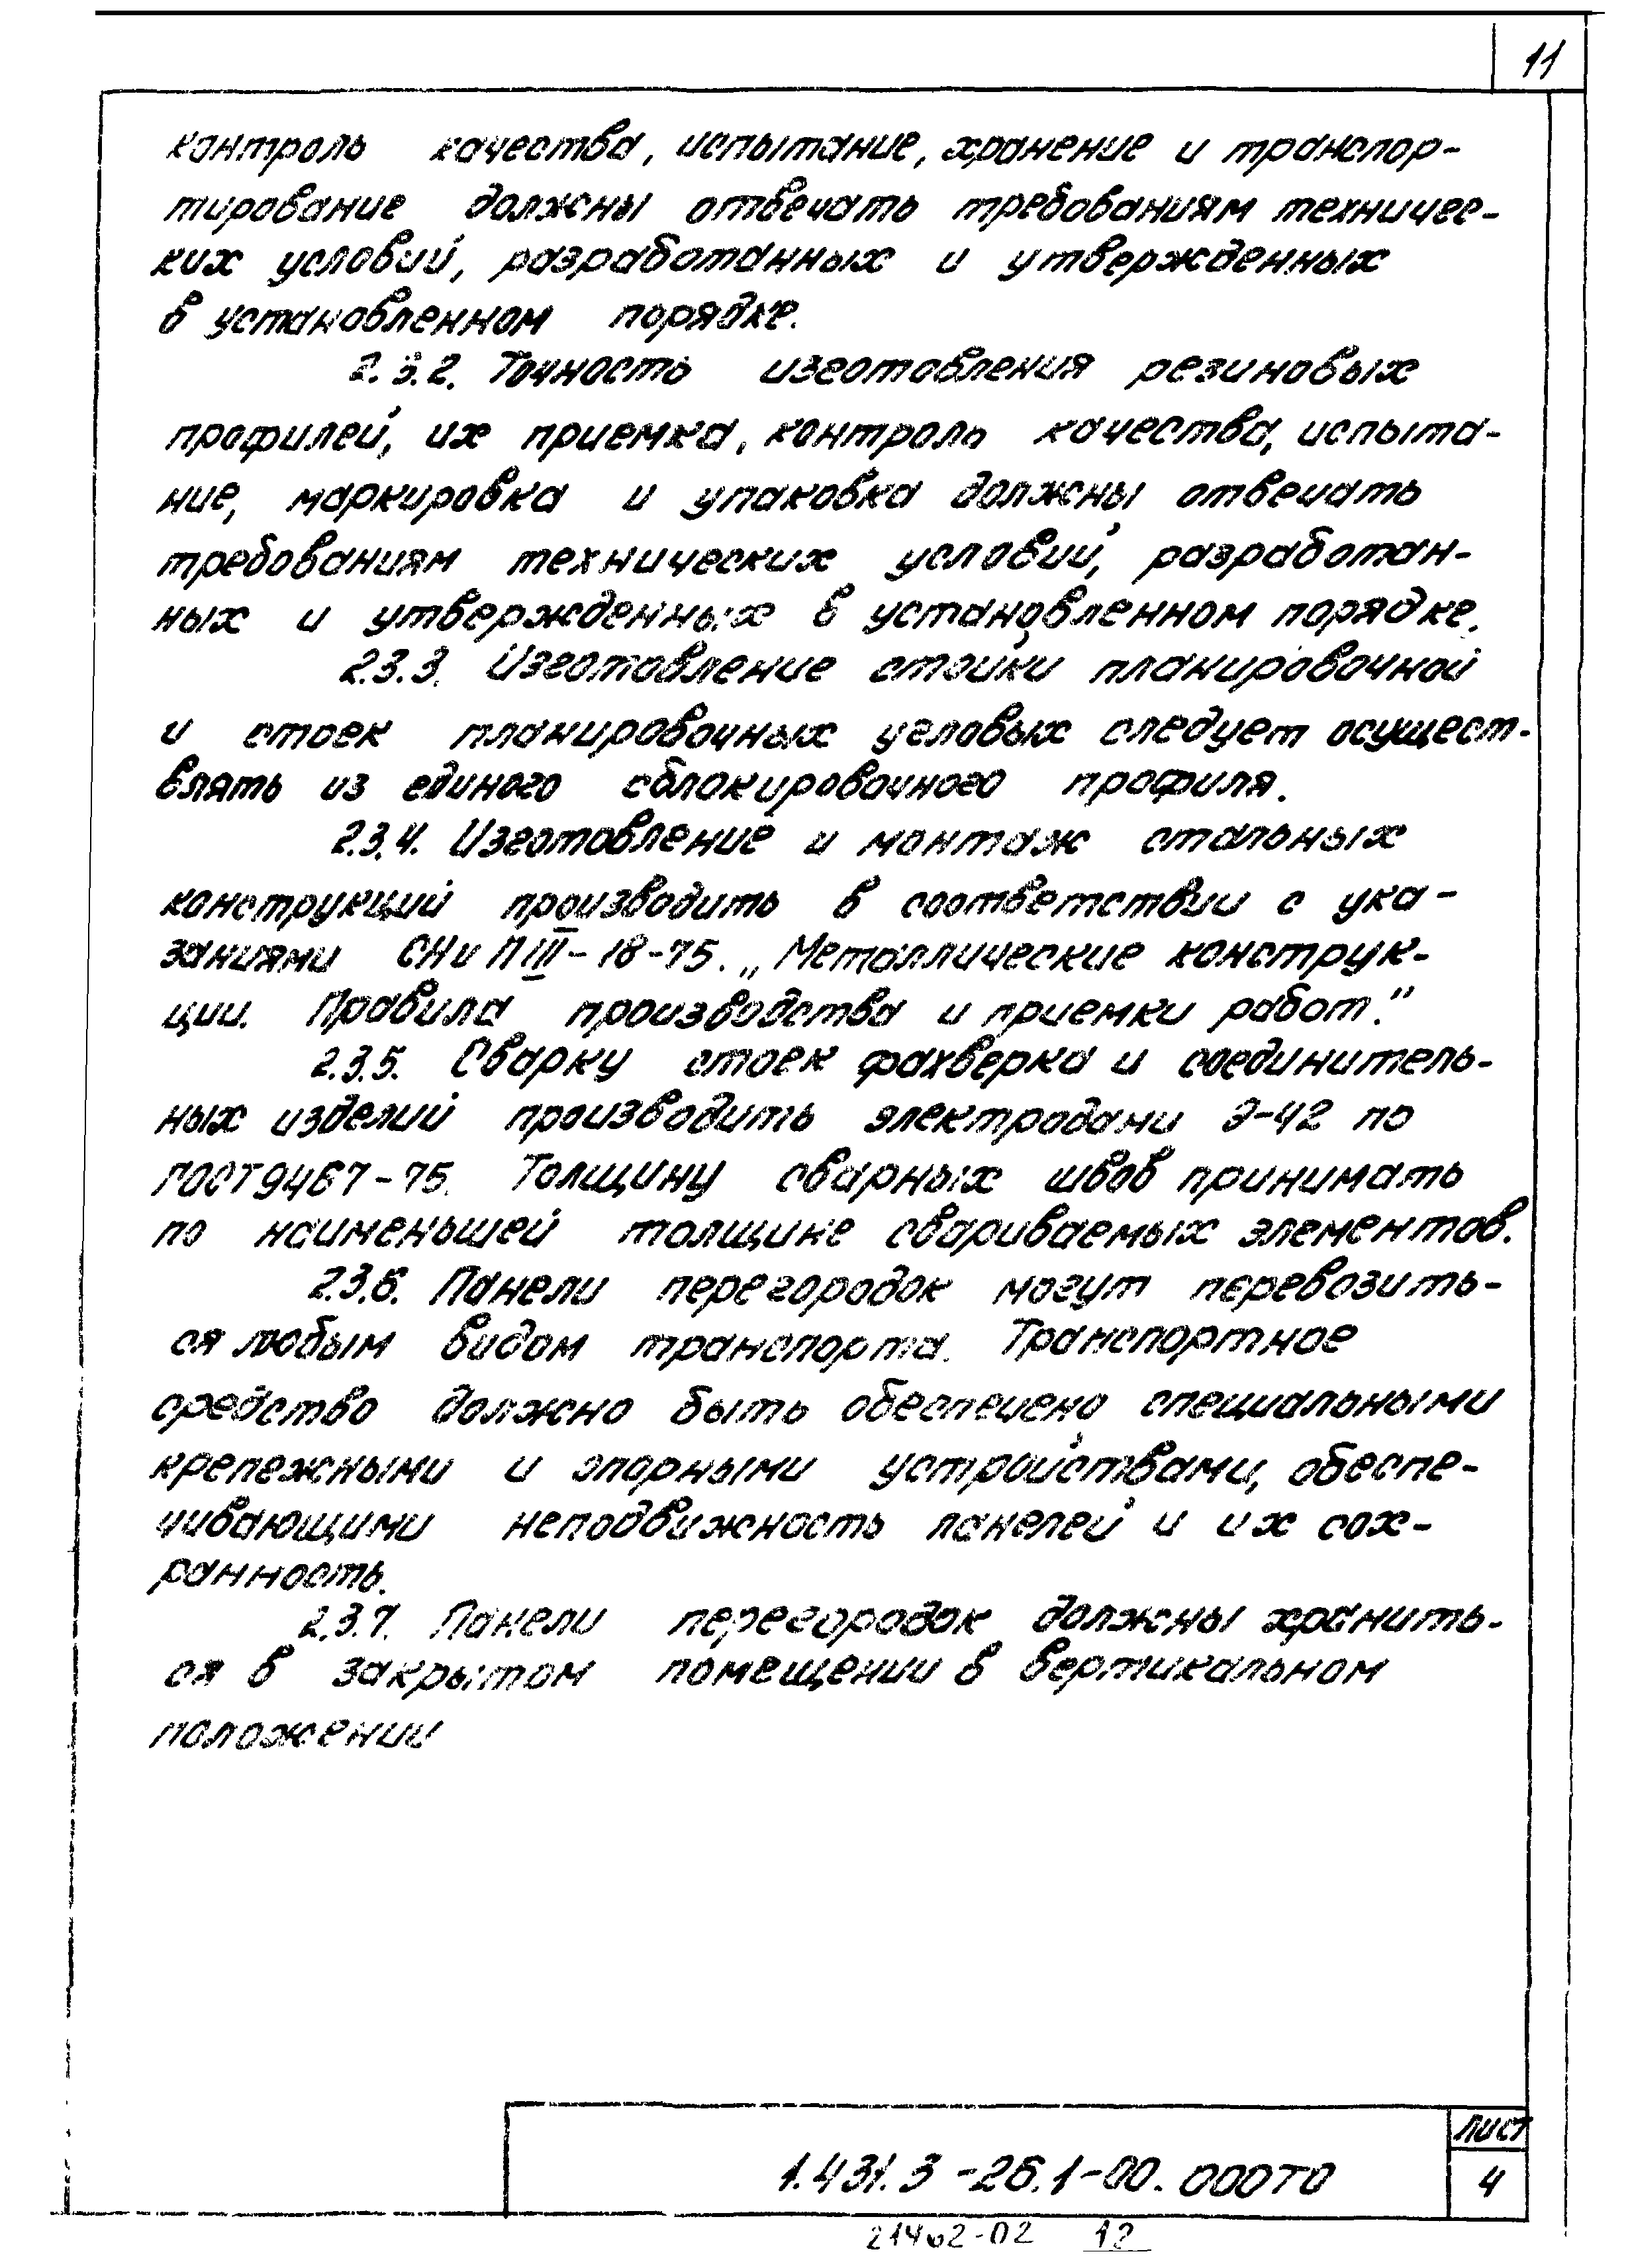 11
контроль качества, испытание, хранение и транспор-
тирование должны отвечать требованиям техничес-
ких условий, разработанных и утвержденных
в установленном порядке.
2.3.2. Точность изготовления резиновых
профилей, их приемка, контроль качества, испыта-
ние, маркировка и упаковка должны отвечать
требованиям технических условий, разработан-
ных и утвержденных в установленном порядке.
2.3.3. Изготовление стойки планировочной
и стоек планировочных угловых следует осущест-
влять из единого сблокировочного профиля.
2.3.4. Изготовление и монтаж стальных
конструкций производить в соответствии с ука-
заниями СНиП III-18-75. „Металлические конструк-
ции. Правила производства и приемки работ."
2.3.5. Сварку стоек фахверка и соединитель-
ных изделий производить электродами Э-42 по
ГОСТ 9467-75. Толщину сварных швов принимать
по наименьшей толщине свариваемых элементов.
2.3.6. Панели перегородок могут перевозить-
ся любым видом транспорта. Транспортное
средство должно быть обеспечено специальными
крепежными и опорными устройствами, обеспе-
чивающими неподвижность панелей и их сох-
ранность.
2.3.7. Панели перегородок должны хранить-
ся в закрытом помещении в вертикальном
положении
1.431.3-26.1-00.000ТО
Лист
4
21462-02 12